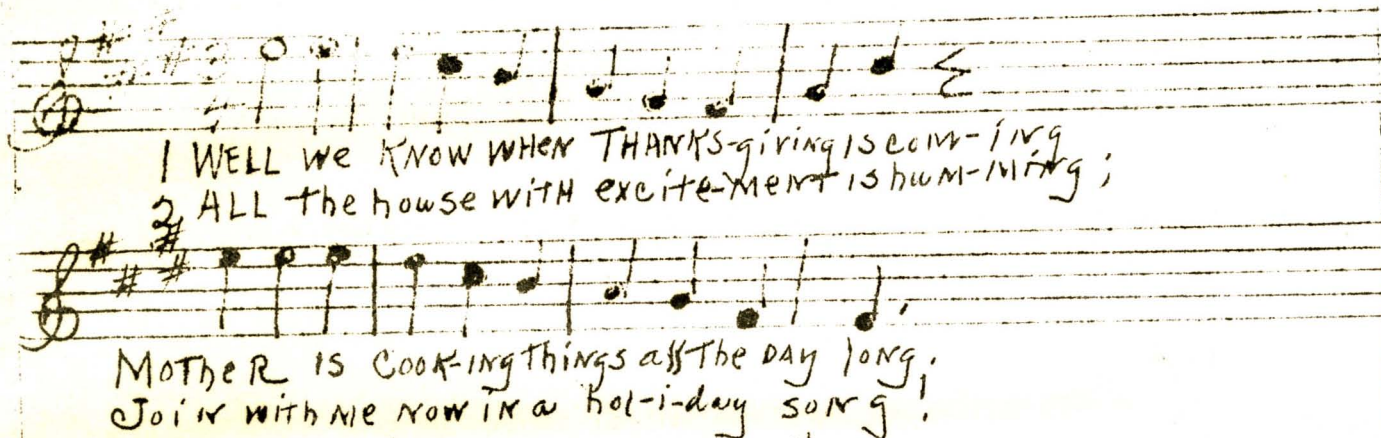 1 WELL We KNOW WHEN THANKS-giving IS com-ing
2 ALL the house WITH excite-MENT is hum-MING;
MOTHER IS COOK-ing things all The DAY long.
Join with me NOW in a hol-i-day song!